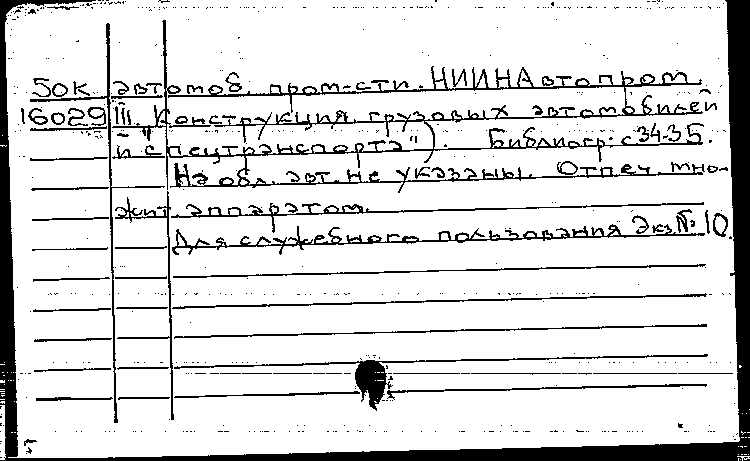 50К автомоб. пром-сти. НИИНАвтопром.
16029 III. "Конструкция грузовых автомобилей
и спецтранспорта"). Библиогр: с 34-35.
На обл. авт. не указаны. Отпеч. мно-
жит. аппаратом.
Для служебного пользования Экз № 10.
5